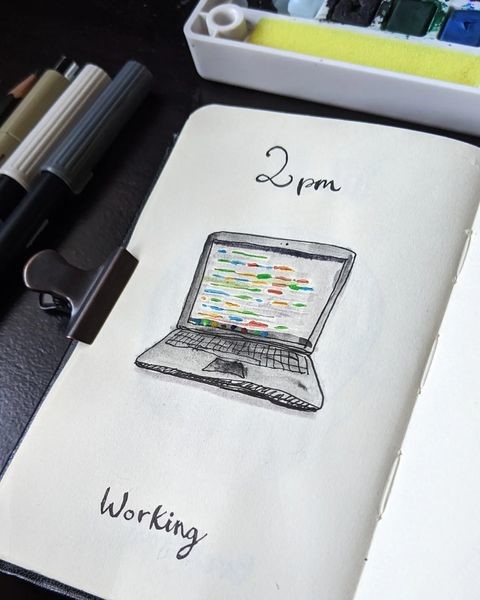 2pm
Working